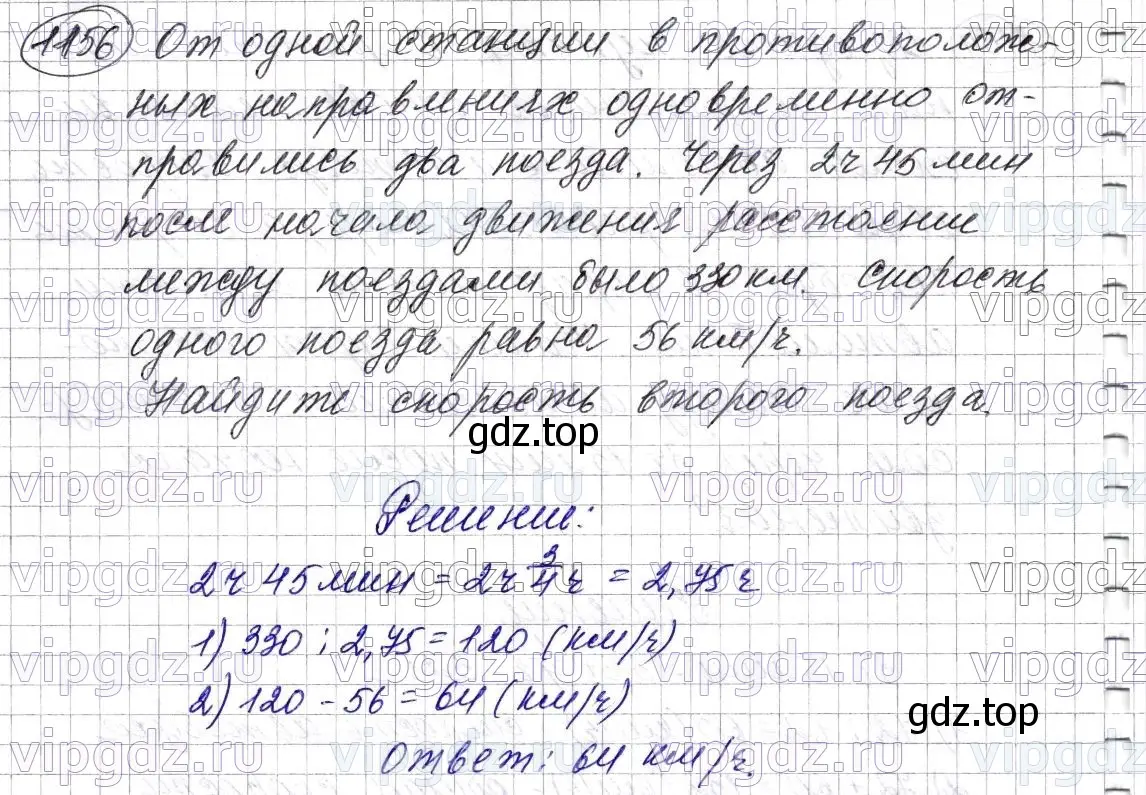 1156 От одной станции в противополож-
ных направлениях одновременно от-
правились два поезда. Через 2ч 45 мин
после начала движения расстояние
между поездами было 330 км. Скорость
одного поезда равна 56 км/ч.
Найдите скорость второго поезда.
gdz.top
Решение:
2ч 45 мин = 2ч 3/4 ч = 2,75 ч
1) 330 : 2,75 = 120 (км/ч)
2) 120 - 56 = 64 (км/ч)
gdz.top
Ответ: 64 км/ч.